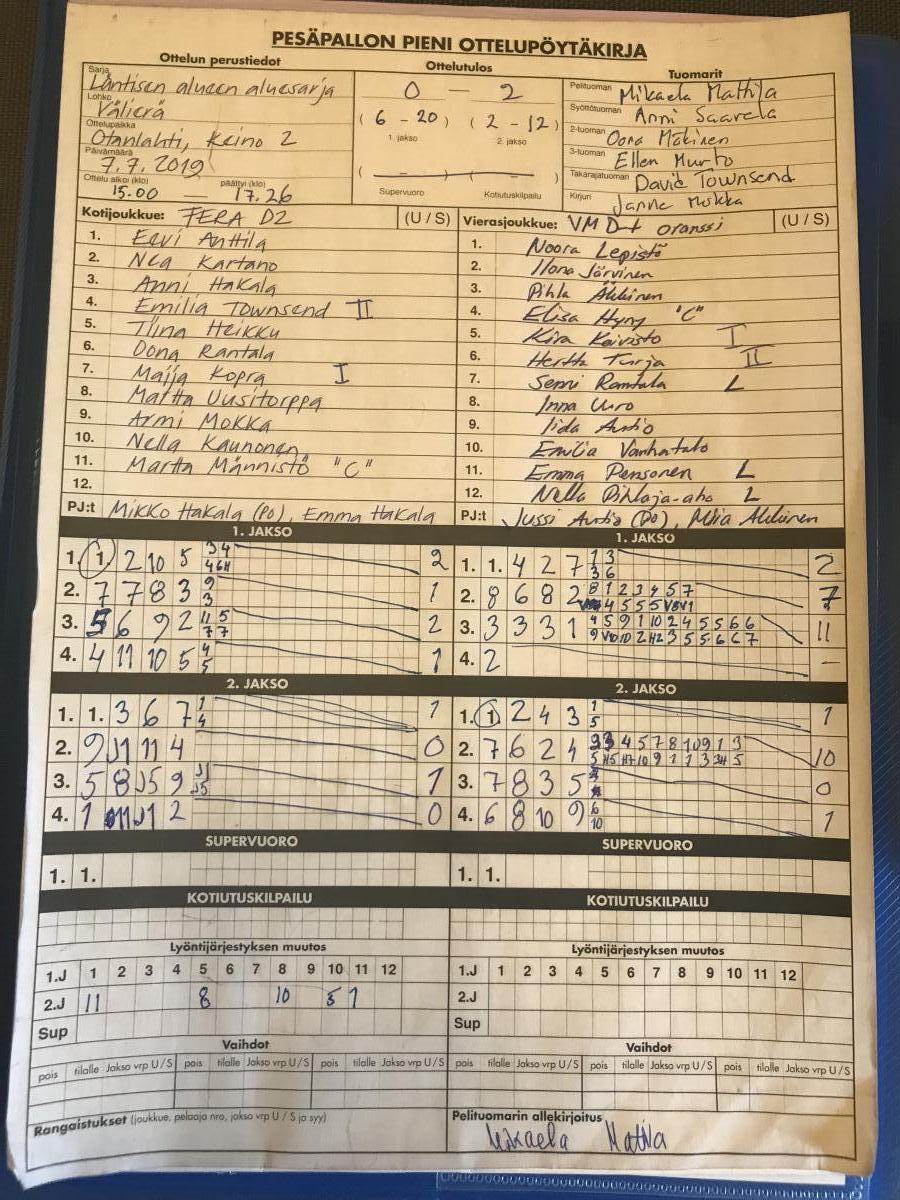 PESÄPALLON PIENI OTTELUPÖYTÄKIRJA
Ottelun perustiedot
Ottelutulos
Tuomarit
Sarja
Läntisen alueen aluesarja
Lohko
Välierä
Ottelupaikka
Otanlahti, Keino 2
Päivämäärä
7.7.2019
Ottelu alkoi (klo) päättyi (klo)
15.00 — 17.26
0 — 2
( 6 - 20 ) ( 2 - 12 )
1. jakso 2. jakso
( — )
Supervuoro Kotiutuskilpailu
Pelituomari Mikaela Mattila
Syöttötuomari Anni Saarela
2-tuomari Oona Mäkinen
3-tuomari Ellen Murto
Takarajatuomari David Townsend
Kirjuri Janne Mokka
Kotijoukkue: FERA D2 (U / S)
1. Eevi Anttila
2. Nea Kartano
3. Anni Hakala
4. Emilia Townsend II
5. Tiina Heikku
6. Oona Rantala
7. Maija Kopra I
8. Martta Uusitorppa
9. Armi Mokka
10. Nella Kaunonen
11. Martta Männistö "C"
12.
PJ:t Mikko Hakala (PO), Emma Hakala
Vierasjoukkue: VM D-t oranssi (U / S)
1. Noora Lepistö
2. Ilona Järvinen
3. Pihla
4. Elisa Hyny "C"
5. Kira Koivisto I
6. Hertta Turja II
7. Senni Rantala L
8. Inna Uuro
9. Iida Autio
10. Emilia Vanhatalo
11. Emma Pensonen L
12. Nella Pihlaja-aho L
PJ:t Jussi Autio (PO),
1. JAKSO
1. 1. 2 10 5 3 4 2
4 6H
2. 7 7 8 3 9 1
3
3. 5 6 9 2 11 5 2
7 7
4. 4 11 10 5 4 1
5
1. JAKSO
1. 1. 4 2 7 1 3 2
3 6
2. 8 6 8 2 8 1 2 3 4 5 7 7
4 5 5 5
3. 3 3 3 1 4 5 9 1 10 2 4 5 5 6 6 11
2 H2 3 5 5 6 6 7
4. 2 —
2. JAKSO
1. 1. 3 6 7 1 1
4
2. 9 J1 11 4 0
3. 5 8 J5 9 J1 1
J5
4. 1 11 J1 2 0
2. JAKSO
1. 1 2 4 3 1 1
5
2. 7 6 2 4 3 4 5 7 8 10 9 1 3 10
5 H5 H7 10 9 1 1 3 3H 5
3. 7 8 3 5 0
4. 6 8 10 9 6 1
10
SUPERVUORO
1. 1.
SUPERVUORO
1. 1.
KOTIUTUSKILPAILU
KOTIUTUSKILPAILU
Lyöntijärjestyksen muutos
1.J 1 2 3 4 5 6 7 8 9 10 11 12
2.J 11 8 10 5 1
Sup
Lyöntijärjestyksen muutos
1.J 1 2 3 4 5 6 7 8 9 10 11 12
2.J
Sup
Vaihdot
pois tilalle Jakso vrp U / S pois tilalle Jakso vrp U / S pois tilalle Jakso vrp U / S
Vaihdot
pois tilalle Jakso vrp U / S pois tilalle Jakso vrp U / S pois tilalle Jakso vrp U / S
Rangaistukset (joukkue, pelaaja nro, jakso vrp U / S ja syy)
Pelituomarin allekirjoitus
Mikaela Mattila